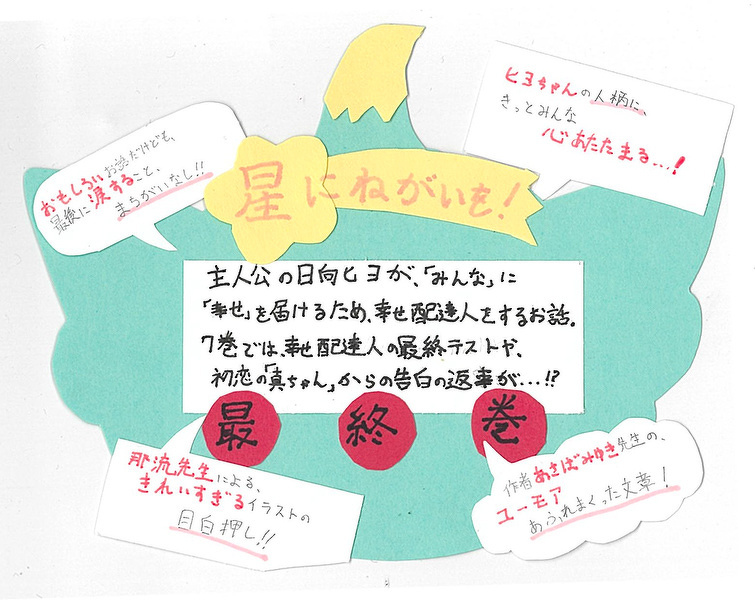 ヒヨちゃんの人柄に、
きっとみんな
心あたたまる…!
おもしろいお話だけども、
最後に涙すること、
まちがいなし!!
星にねがいを!
主人公の日向ヒヨが、「みんな」に
「幸せ」を届けるため、幸せ配達人をするお話。
7巻では、幸せ配達人の最終テストや、
初恋の「真ちゃん」からの告白の返事が…!?
最終巻
那流先生による、
きれいすぎるイラストの
目白押し!!
作者あさばみゆき先生の、
ユーモア
あふれまくった文章!